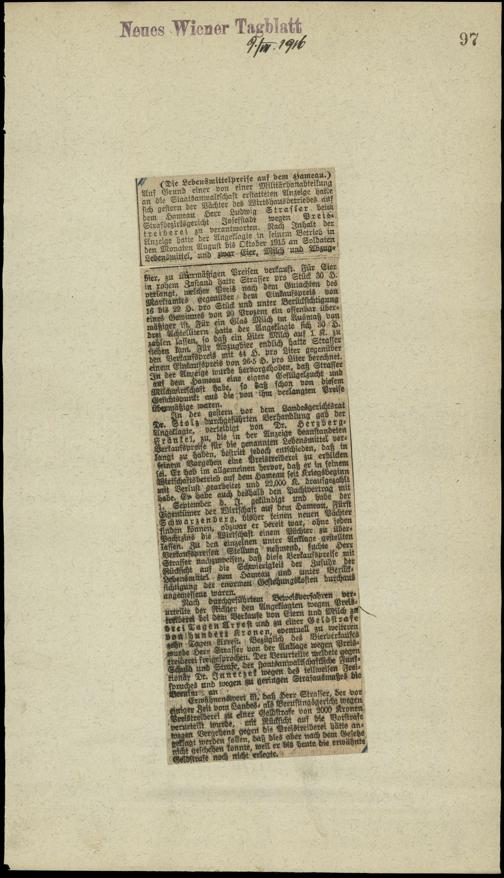 Neues Wiener Tagblatt
9/III. 1916
97
(Die Lebensmittelpreise auf dem Hameau.)
Auf Grund einer von einer Militärhanabteilung
an die Staatsanwaltschaft erstatteten Anzeige hatte
sich gestern der Pächter des Wirtshausbetriebes auf
dem Hameau Herr Ludwig Strasser beim
Strafbezirksgericht Josefstadt wegen Preis-
treiberei zu verantworten. Nach Inhalt der
Anzeige hatte der Angeklagte in seinem Betrieb in
den Monaten August bis Oktober 1915 an Soldaten
Lebensmittel, und zwar Eier, Milch und Abzug-
bier, zu übermäßigen Preisen verkauft. Für Eier
in rohem Zustand hatte Strasser pro Stück 30 H.
verlangt, welcher Preis nach dem Gutachten des
Marktamtes gegenüber dem Einkaufspreis von
16 bis 22 H. pro Stück und unter Berücksichtigung
eines Gewinnes von 20 Prozent ein offenbar über-
mäßiger ist. Für ein Glas Milch im Ausmaß von
drei Achtellitern hatte der Angeklagte sich 30 H.
zahlen lassen, so daß ein Liter Milch auf 1 K. zu
stehen kam. Für Abzugbier endlich hatte Strasser
den Verkaufspreis mit 44 H. pro Liter gegenüber
einem Einkaufspreis von 26·5 H. pro Liter berechnet.
In der Anzeige wurde hervorgehoben, daß Strasser
auf dem Hameau eine eigene Geflügelzucht und
Milchwirtschaft habe, so daß schon von diesem
Gesichtspunkt aus die von ihm verlangten Preise
übermäßige waren.
In der gestern vor dem Landesgerichtsrat
Dr. Stolz durchgeführten Verhandlung gab der
Angeklagte, verteidigt von Dr. Herzberg-
Fränkel, zu, die in der Anzeige beanstandeten
Verkaufspreise für die genannten Lebensmittel ver-
langt zu haben, bestritt jedoch entschieden, daß in
seinem Vorgehen eine Preistreiberei zu erblicken
sei. Er hob im allgemeinen hervor, daß er in seinem
Wirtschaftsbetrieb auf dem Hameau seit Kriegsbeginn
mit Verlust gearbeitet und 22,000 K. draufgezahlt
habe. Er habe auch deshalb den Pachtvertrag mit
1. September d. J. gekündigt und habe der
Eigentümer der Wirtschaft auf dem Hameau, Fürst
Schwarzenberg, bisher keinen neuen Pächter
finden können, obzwar er bereit war, ohne jeden
Pachtzins die Wirtschaft einem Pächter zu über-
lassen. Zu den einzelnen unter Anklage gestellten
Verkaufspreisen Stellung nehmend, suchte Herr
Strasser nachzuweisen, daß diese Verkaufspreise mit
Rücksicht auf die Schwierigkeit der Zufuhr der
Lebensmittel zum Hameau und unter Berück-
sichtigung der enormen Gestehungskosten durchaus
angemessene waren.
Nach durchgeführtem Beweisverfahren ver-
urteilte der Richter den Angeklagten wegen Preis-
treiberei bei dem Verkaufe von Eiern und Milch zu
drei Tagen Arrest und zu einer Geldstrafe
von hundert Kronen, eventuell zu weiteren
zehn Tagen Arrest. Bezüglich des Bierverkaufes
wurde Herr Strasser von der Anklage wegen Preis-
treiberei freigesprochen. Der Verurteilte meldete gegen
Schuld und Strafe, der staatsanwaltschaftliche Funk-
tionär Dr. wegen des teilweisen Frei-
spruches und wegen zu geringen Strafausmaßes die
Berufung an.
Erwähnenswert ist, daß Herr Strasser, der vor
einiger Zeit vom Landes- als Berufungsgericht wegen
Preistreiberei zu einer Geldstrafe von 2000 Kronen
verurteilt wurde, mit Rücksicht auf die Vorstrafe
wegen Vergehens gegen die Preistreiberei hätte an-
geklagt werden sollen, daß dies aber nach dem Gesetze
nicht geschehen konnte, weil er bis heute die erwähnte
Geldstrafe noch nicht erlegte.